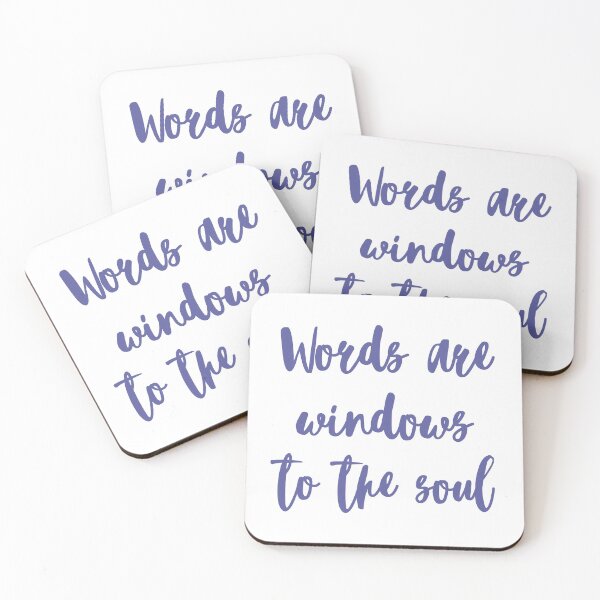 Words are
windows
Words are
windows
to the soul
Words are
windows
to the
Words are
windows
to the soul